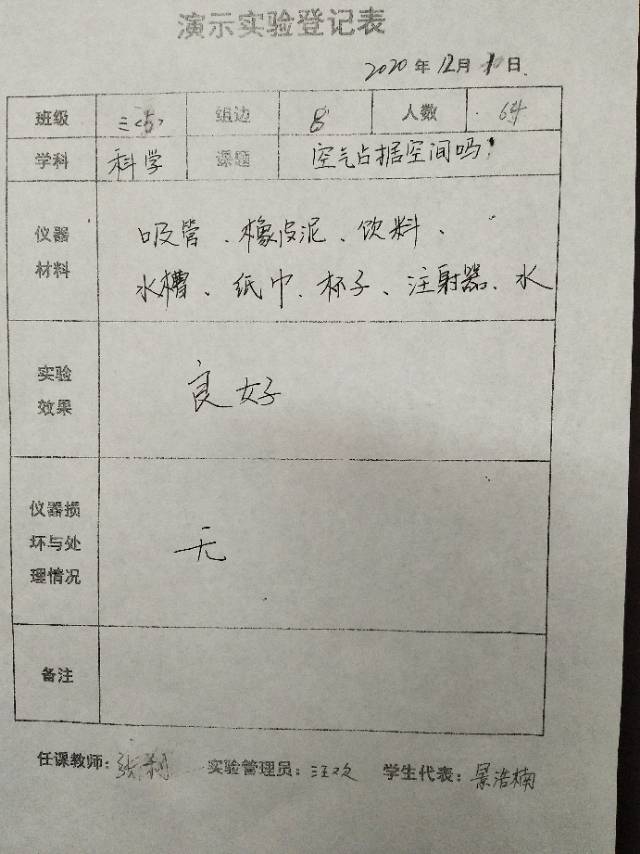 演示实验登记表
2020年12月10日
班级 三<5> 组边 8 人数 64
学科 科学 课题 空气占据空间吗?
仪器材料 吸管、橡皮泥、饮料、
水槽、纸巾、杯子、注射器、水
实验效果 良好
仪器损坏与处理情况 无
备注
任课教师: 实验管理员:汪欢 学生代表:景浩楠